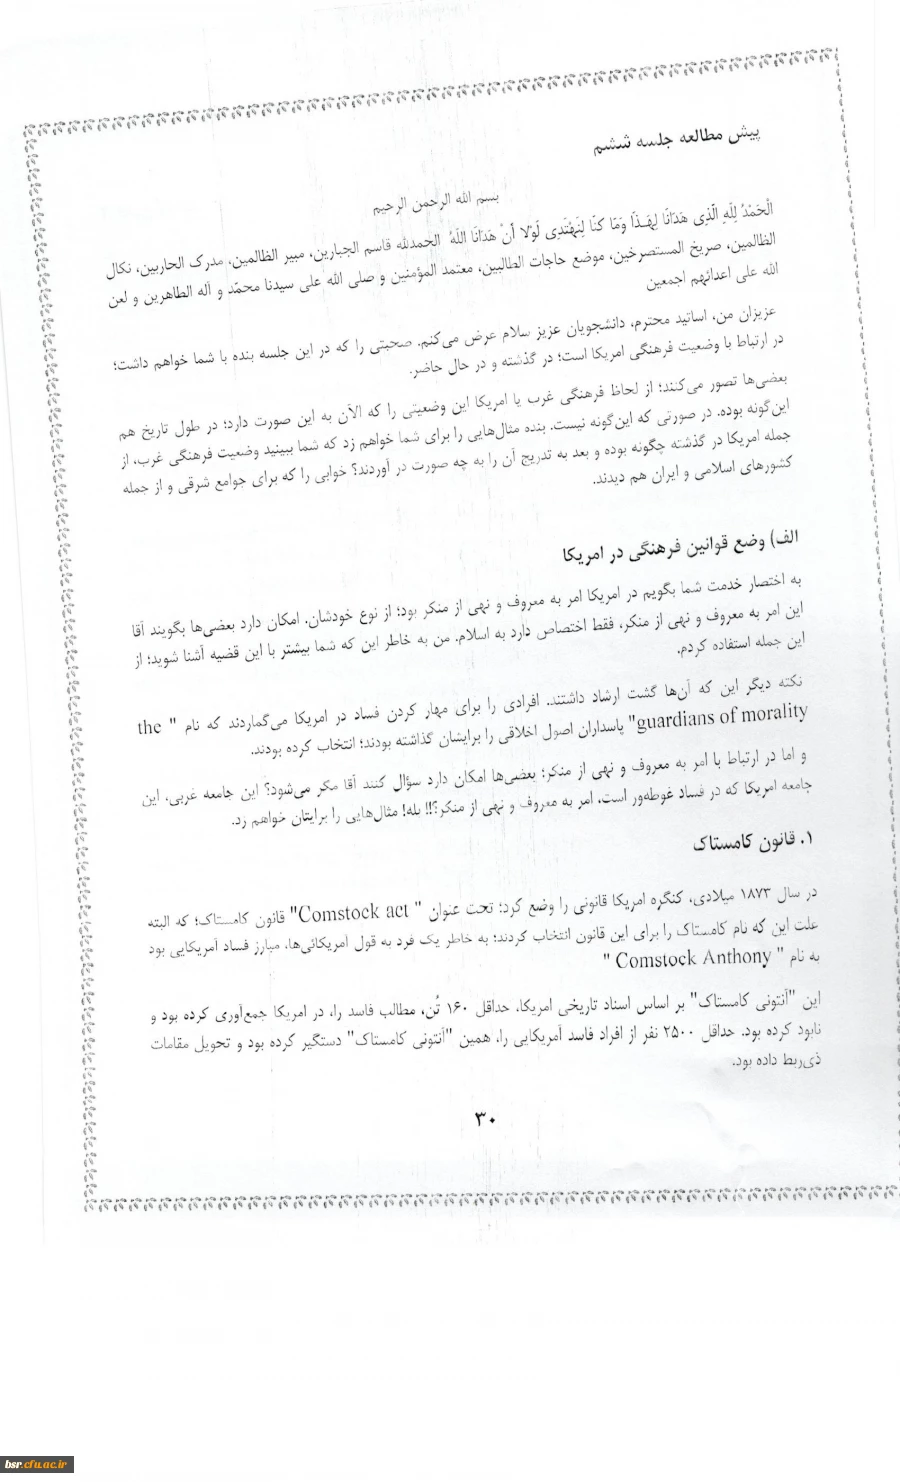 پیش مطالعه جلسه ششم
بسم الله الرحمن الرحیم
الْحَمْدُ لِلّهِ الَّذِی هَدَانَا لِهَـذَا وَمَا کُنَّا لِنَهْتَدِیَ لَوْلا أَنْ هَدَانَا اللّهُ الحمدلله قاسم الجبارین، مبیر الظالمین، مدرک الحاربین، نکال
الظالمین، صریخ المستصرخین، موضع حاجات الطالبین، معتمد المؤمنین و صلی الله علی سیدنا محمّد و آله الطاهرین و لعن
الله علی اعدائهم اجمعین
عزیزان من، اساتید محترم، دانشجویان عزیز سلام عرض می‌کنم. صحبتی را که در این جلسه بنده با شما خواهم داشت؛
در ارتباط با وضعیت فرهنگی امریکا است؛ در گذشته و در حال حاضر.
بعضی‌ها تصور می‌کنند؛ از لحاظ فرهنگی غرب یا امریکا این وضعیتی را که الآن به این صورت دارد؛ در طول تاریخ هم
این‌گونه بوده. در صورتی که این‌گونه نیست. بنده مثال‌هایی را برای شما خواهم زد که شما ببینید وضعیت فرهنگی غرب، از
جمله امریکا در گذشته چگونه بوده و بعد به تدریج آن را به چه صورت در آوردند؟ خوابی را که برای جوامع شرقی و از جمله
کشورهای اسلامی و ایران هم دیدند.
الف) وضع قوانین فرهنگی در امریکا
به اختصار خدمت شما بگویم در امریکا امر به معروف و نهی از منکر بود؛ از نوع خودشان. امکان دارد بعضی‌ها بگویند آقا
این امر به معروف و نهی از منکر، فقط اختصاص دارد به اسلام. من به خاطر این که شما بیشتر با این قضیه آشنا شوید؛ از
این جمله استفاده کردم.
نکته دیگر این که آن‌ها گشت ارشاد داشتند. افرادی را برای مهار کردن فساد در امریکا می‌گماردند که نام " the
guardians of morality" پاسداران اصول اخلاقی را برایشان گذاشته بودند؛ انتخاب کرده بودند.
و اما در ارتباط با امر به معروف و نهی از منکر؛ بعضی‌ها امکان دارد سؤال کنند آقا مگر می‌شود؟ این جامعه غربی، این
جامعه امریکا که در فساد غوطه‌ور است، امر به معروف و نهی از منکر؟!! بله! مثال‌هایی را برایتان خواهم زد.
۱. قانون کامستاک
در سال ۱۸۷۳ میلادی، کنگره امریکا قانونی را وضع کرد؛ تحت عنوان " Comstock act" قانون کامستاک؛ که البته
علت این که نام کامستاک را برای این قانون انتخاب کردند؛ به خاطر یک فرد به قول آمریکائی‌ها، مبارز فساد آمریکایی بود
به نام " Comstock Anthony "
این "آنتونی کامستاک" بر اساس اسناد تاریخی امریکا، حداقل ۱۶۰ تُن، مطالب فاسد را، در امریکا جمع‌آوری کرده بود و
نابود کرده بود. حداقل ۲۵۰۰ نفر از افراد فاسد آمریکایی را، همین "آنتونی کامستاک" دستگیر کرده بود و تحویل مقامات
ذی‌ربط داده بود.
۳۰
bsr.cfu.ac.ir